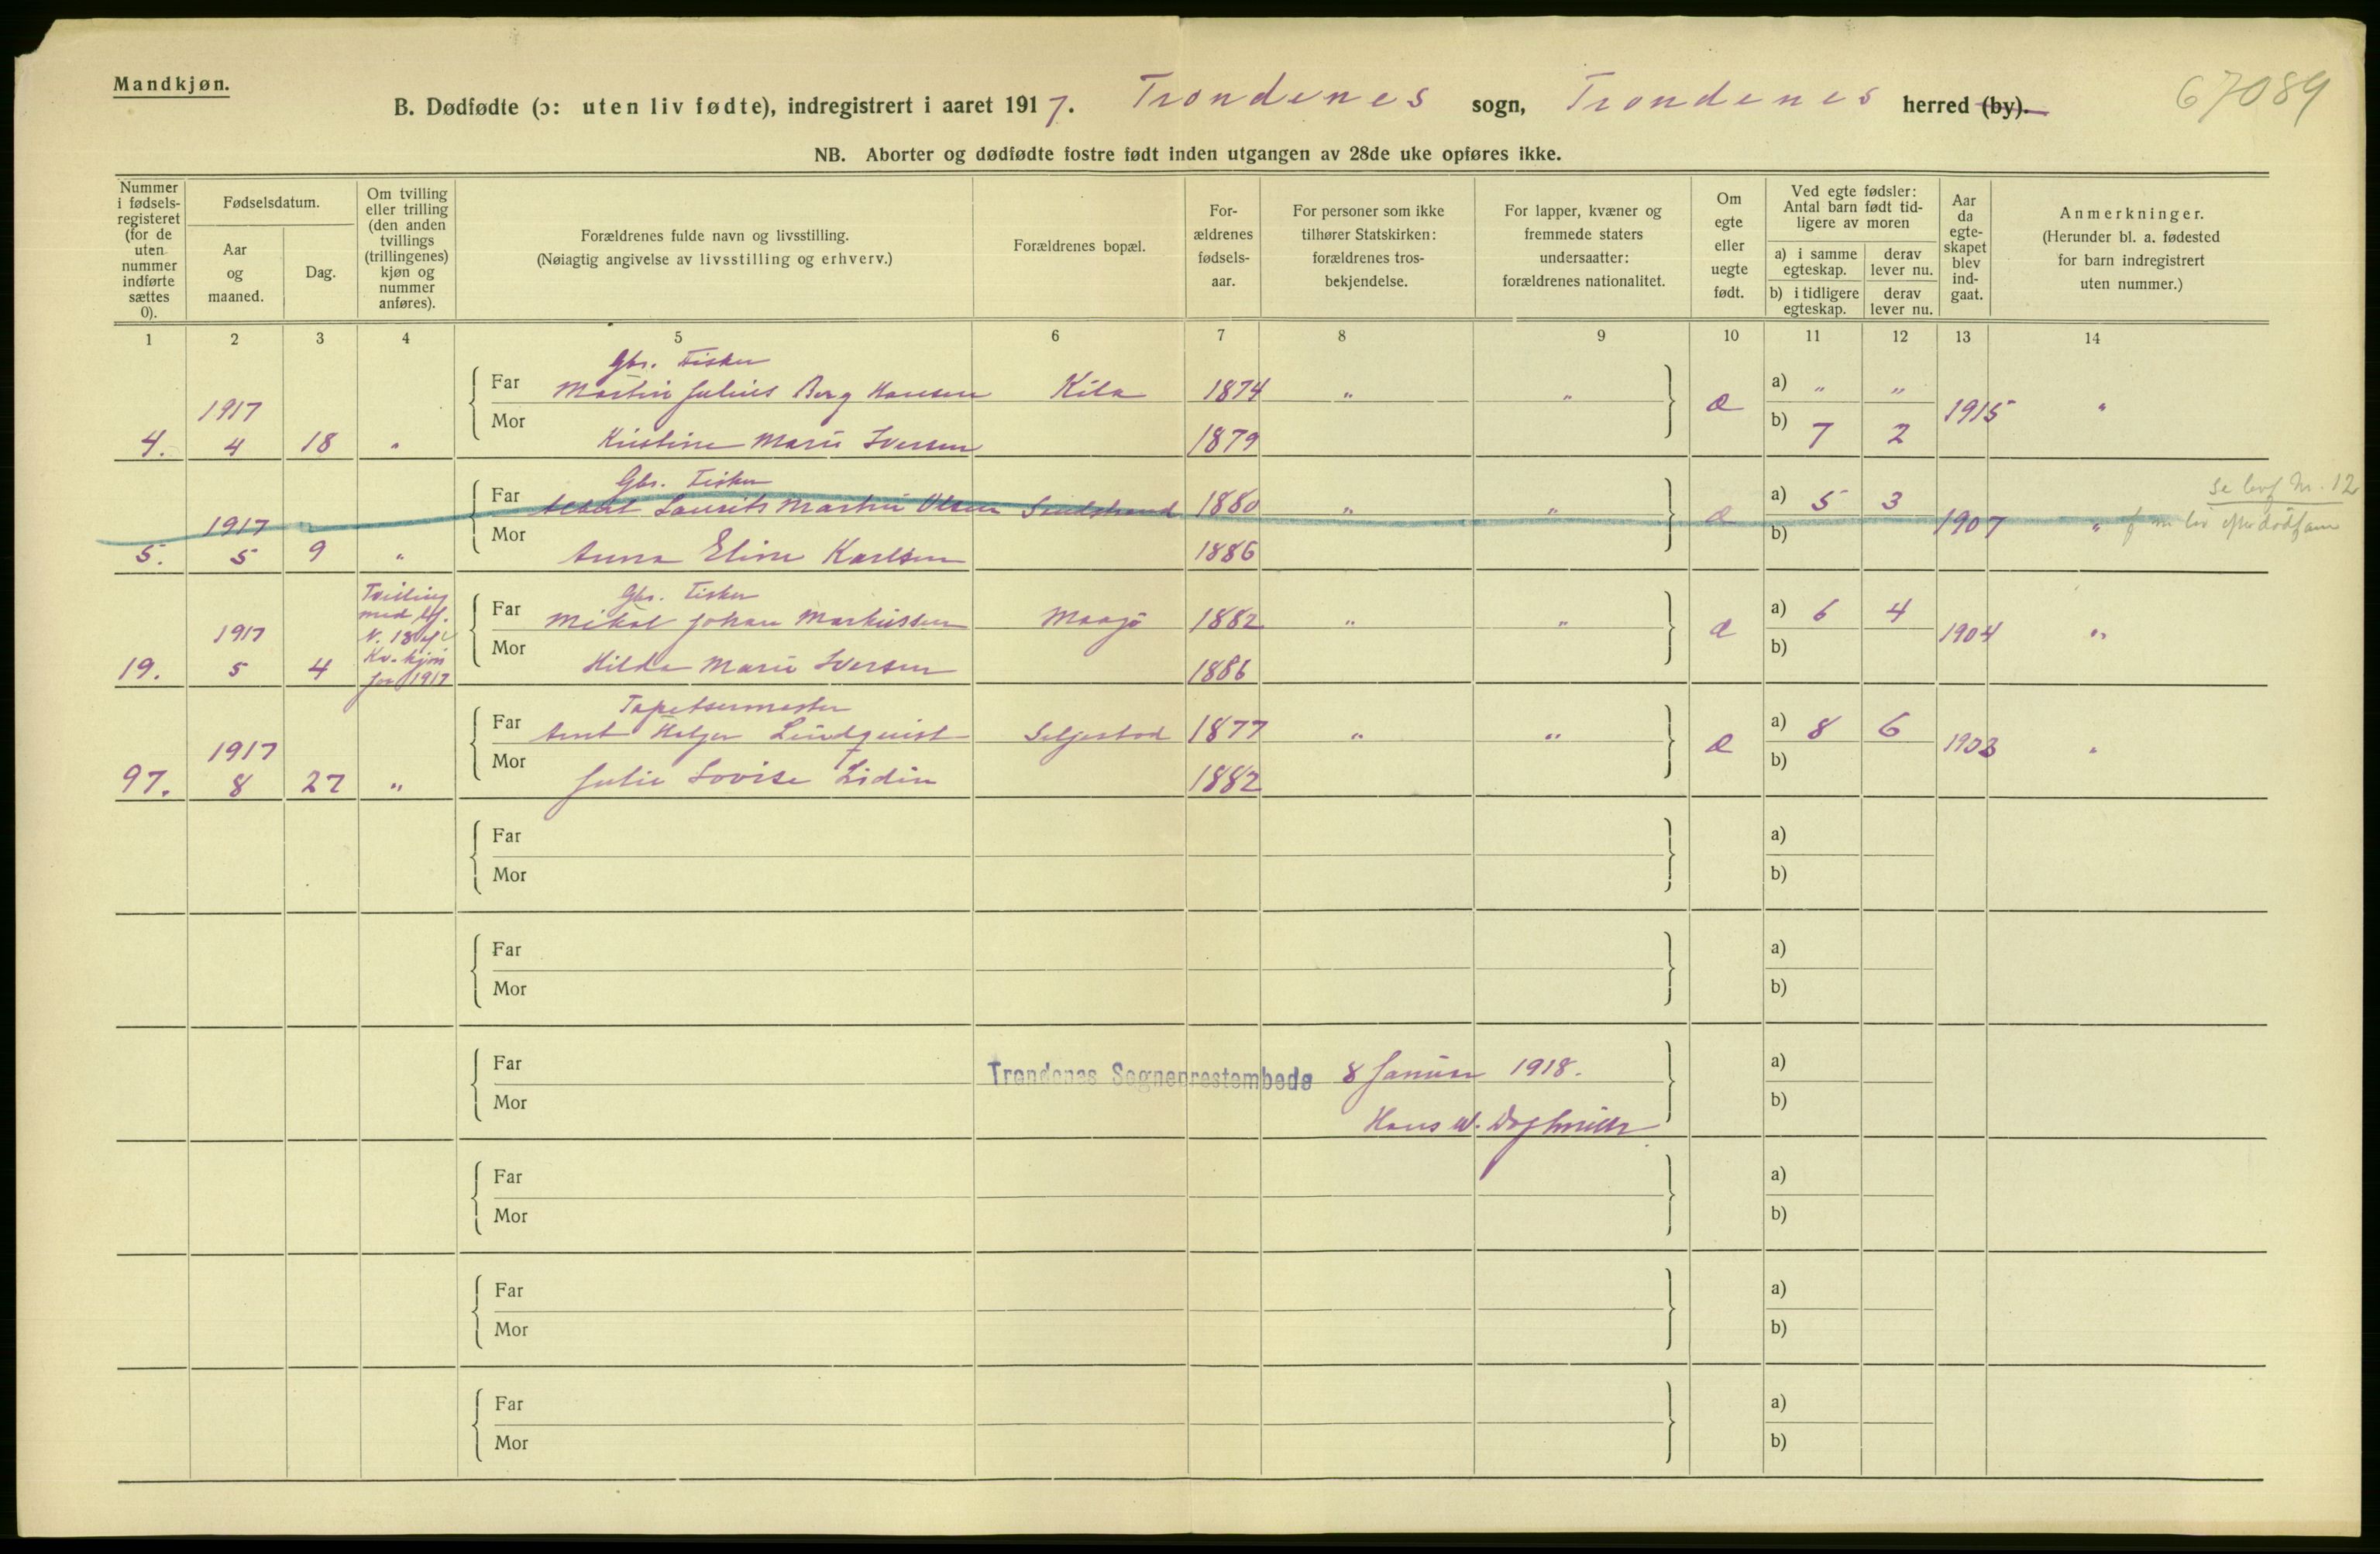 Mandkjøn.
B. Dødfødte (ɔ: uten liv fødte), indregistrert i aaret 1917. Trondenes sogn, Trondenes herred (by).
67089
NB. Aborter og dødfødte fostre født inden utgangen av 28de uke opføres ikke.
Nummer i fødsels-registeret (for de uten nummer indførte sættes 0).
Fødselsdatum.
Aar og maaned.
Dag.
Om tvilling eller trilling (den anden tvillings (trillingenes) kjøn og nummer anføres).
Forældrenes fulde navn og livsstilling.
(Nøiagtig angivelse av livsstilling og erhverv.)
Forældrenes bopæl.
For-ældrenes fødsels-aar.
For personer som ikke tilhører Statskirken: forældrenes tros-bekjendelse.
For lapper, kvæner og fremmede staters undersaatter: forældrenes nationalitet.
Om egte eller uegte født.
Ved egte fødsler: Antal barn født tid-ligere av moren
a) i samme egteskap.
derav lever nu.
b) i tidligere egteskap.
derav lever nu.
Aar da egte-skapet blev ind-gaat.
Anmerkninger.
(Herunder bl. a. fødested for barn indregistrert uten nummer.)
1 2 3 4 5 6 7 8 9 10 11 12 13 14
Gbr. Fisker
Far Martin Julius Berg Hansen Kila 1874 " " a) " "
1917 1915 "
4. 4 18 " Mor Kristine Marie Iversen 1879 b) 7 2
Gbr. Fisker
Far Laurits Martin Olsen Sandstrand 1880 " " a) 5 3
se levf Nr. 12
1917 1907 "
5. 5 9 " Mor Anna Eline Karlsen 1886 b)
Tvilling med lf. N. 18 Kv. kjøn for 1917
Gbr. Fisker
Far Mikal Johan Markussen Maagø 1882 " " a) 6 4
1917 1904 "
19. 5 4 Mor Hilda Marie Iversen 1886 b)
Tapetsermester
Far Arnt Helger Lindquist Seljestad 1877 " " a) 8 6
1917 1903 "
97. 8 27 " Mor Julie Lovise Lidin 1882 b)
Far a)
Mor b)
Far a)
Mor b)
Far Trondenes Sogneprestembede 8 Januar 1918. a)
Mor Hans W. b)
Far a)
Mor b)
Far a)
Mor b)
Far a)
Mor b)